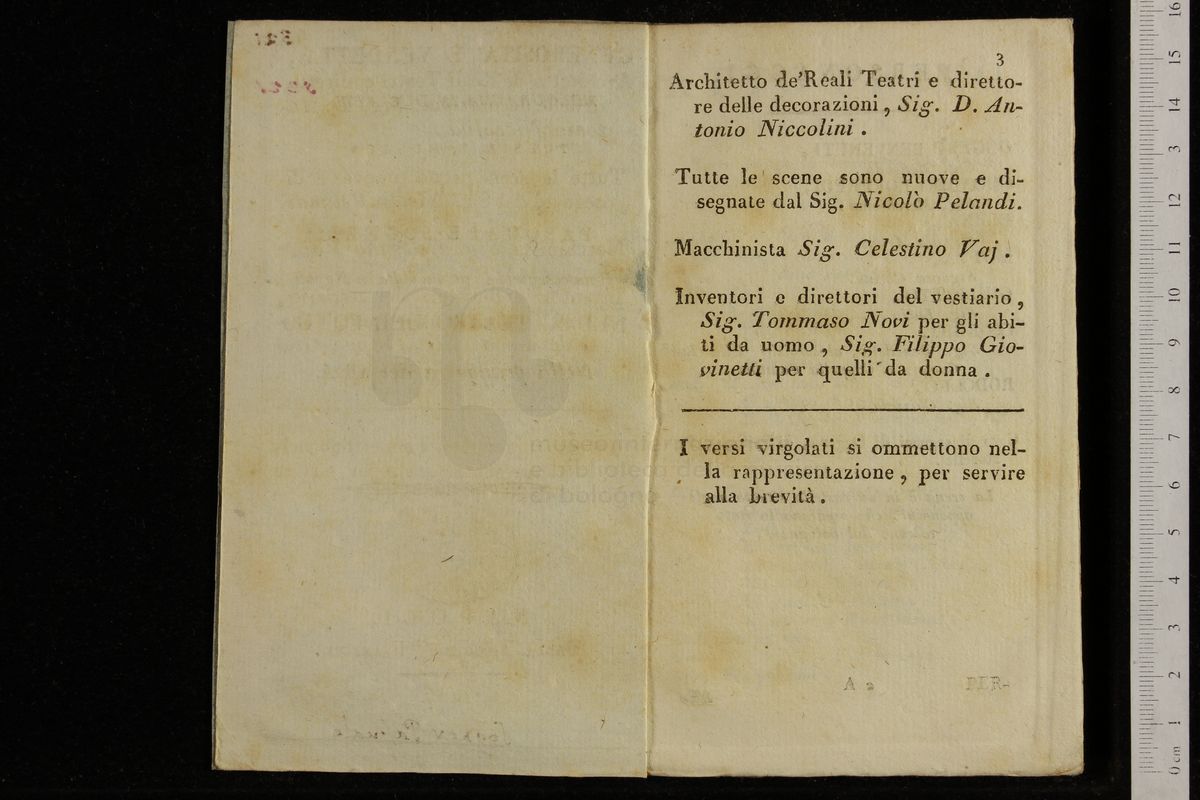 3
Architetto de'Reali Teatri e diretto-
re delle decorazioni, Sig. D. An-
tonio Niccolini.
Tutte le scene sono nuove e di-
segnate dal Sig. Nicolò Pelandi.
Macchinista Sig. Celestino Vaj.
Inventori e direttori del vestiario,
Sig. Tommaso Novi per gli abi-
ti da uomo, Sig. Filippo Gio-
vinetti per quelli da donna.
I versi virgolati si ommettono nel-
la rappresentazione, per servire
alla brevità.
A 2 PER-
0 cm 1 2 3 4 5 6 7 8 9 10 11 12 13 14 15 16